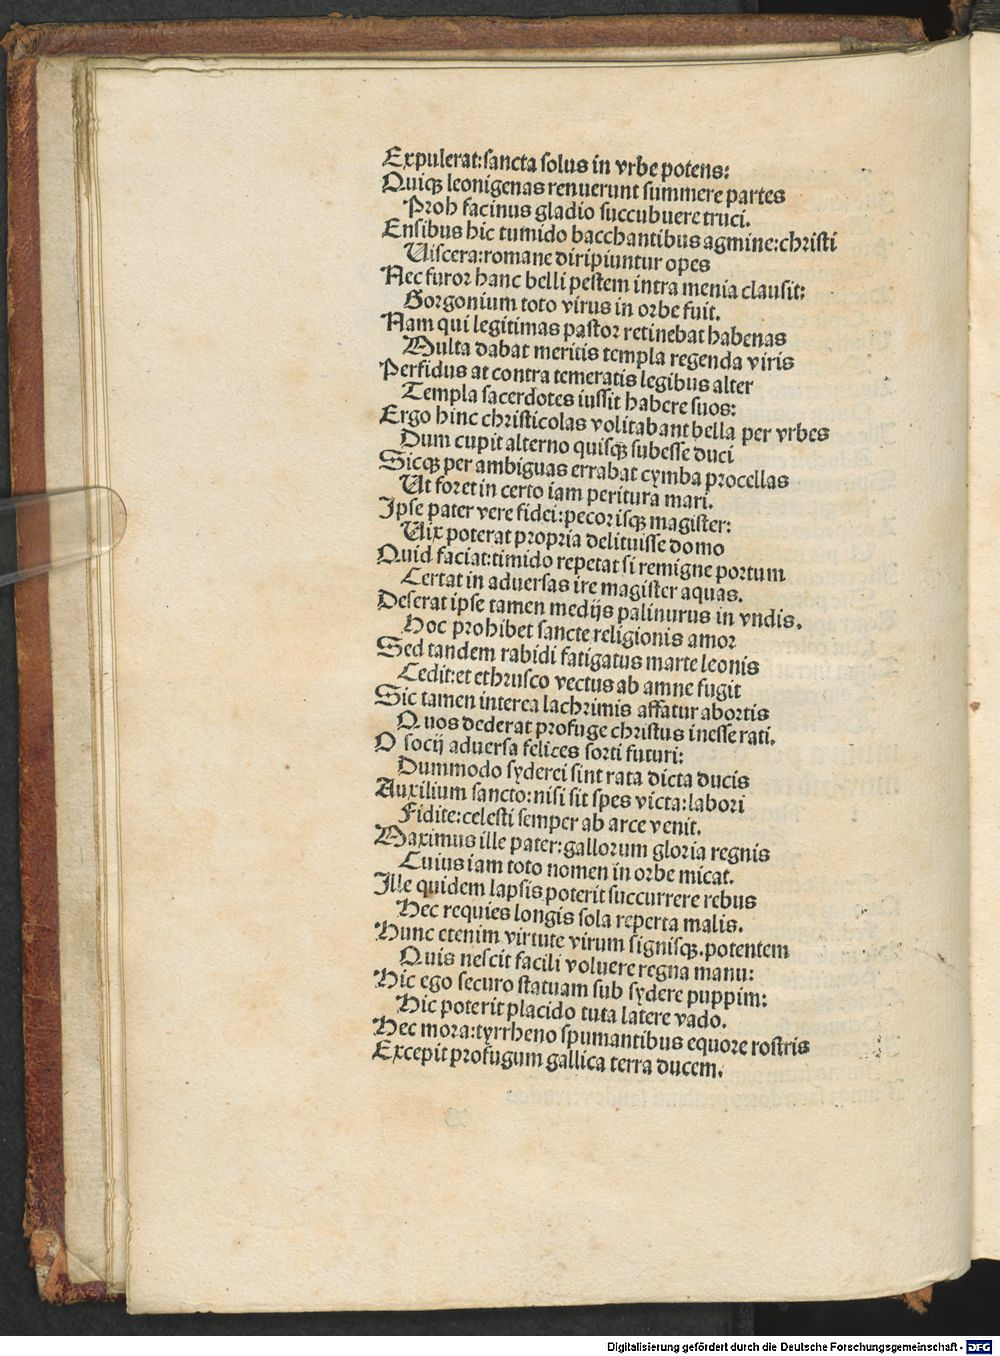 Expulerat:sancta solus in vrbe potens:
Quiqꝫ leonigenas renuerunt summere partes
Proh facinus gladio succubuere truci.
Ensibus hic tumido bacchantibus agmine:christi
Uiscera:romane diripiuntur opes
Nec furor hanc belli pestem intra menia clausit:
Gorgonium toto virus in orbe fuit.
Nam qui legitimas pastor retinebat habenas
Multa dabat meritis templa regenda viris
Perfidus at contra temeratis legibus alter
Templa sacerdotes iussit habere suos:
Ergo hinc christicolas volitabant bella per vrbes
Dum cupit alterno quisqꝫ subesse duci
Sicqꝫ per ambiguas errabat cymba procellas
Ut foret in certo iam peritura mari.
Ipse pater vere fidei:pecorisqꝫ magister:
Uix poterat propria delituisse domo
Quid faciat:timido repetat si remigne portum
Certat in aduersas ire magister aquas.
Deserat ipse tamen medijs palinurus in vndis.
Hoc prohibet sancte religionis amor
Sed tandem rabidi fatigatus marte leonis
Cedit:et ethrusco vectus ab amne fugit
Sic tamen interea lachrimis affatur abortis
Quos dederat profuge christus inesse rati.
O socij aduersa felices sorti futuri:
Dummodo syderei sint rata dicta ducis
Auxilium sancto:nisi sit spes victa:labori
Fidite:celesti semper ab arce venit.
Maximus ille pater:gallorum gloria regnis
Cuius iam toto nomen in orbe micat.
Ille quidem lapsis poterit succurrere rebus
Hec requies longis sola reperta malis.
Hunc etenim virtute virum signisqꝫ.potentem
Quis nescit facili voluere regna manu:
Hic ego securo statuam sub sydere puppim:
Hic poterit placido tuta latere vado.
Hec mora:tyrrheno spumantibus equore rostris
Excepit profugum gallica terra ducem.
Digitalisierung gefördert durch die Deutsche Forschungsgemeinschaft - DFG